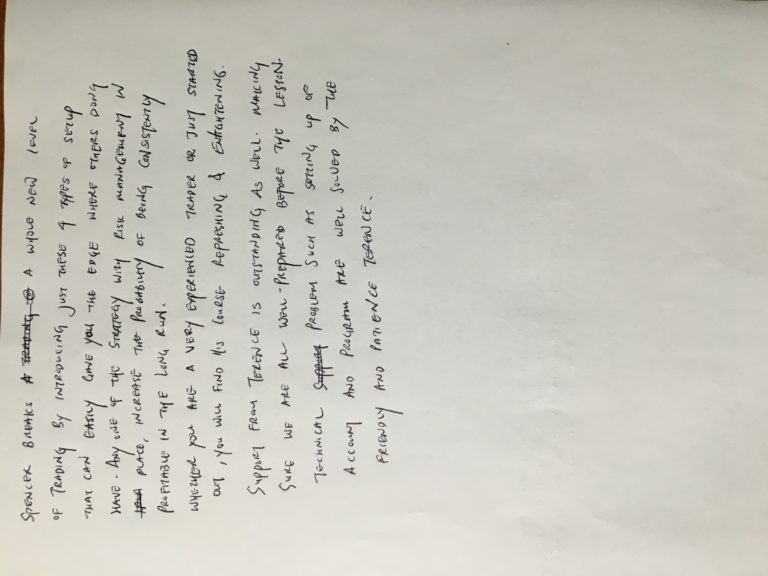 SPENCER BREAKS A WHOLE NEW LEVEL
OF TRADING BY INTRODUCING JUST THESE 4 TYPES OF SETUP
THAT CAN EASILY GAVE YOU THE EDGE WHERE OTHERS DONT
HAVE. ANY ONE OF THE STRATEGY WITH RISK MANAGEMENT IN
PLACE, INCREASE THE PROBABILITY OF BEING CONSISTENTLY
PROFITABLE IN THE LONG RUN.
WHETHER YOU ARE A VERY EXPERIENCED TRADER OR JUST STARTED
OUT, YOU WILL FIND HIS COURSE REFRESHING & ENLIGHTENING.
SUPPORT FROM TERENCE IS OUTSTANDING AS WELL. MAKING
SURE WE ARE ALL WELL-PREPARED BEFORE THE LESSON.
TECHNICAL PROBLEM SUCH AS SETTING UP OF
ACCOUNT AND PROGRAM ARE WELL SOLVED BY THE
FRIENDLY AND PATIENCE TERENCE.